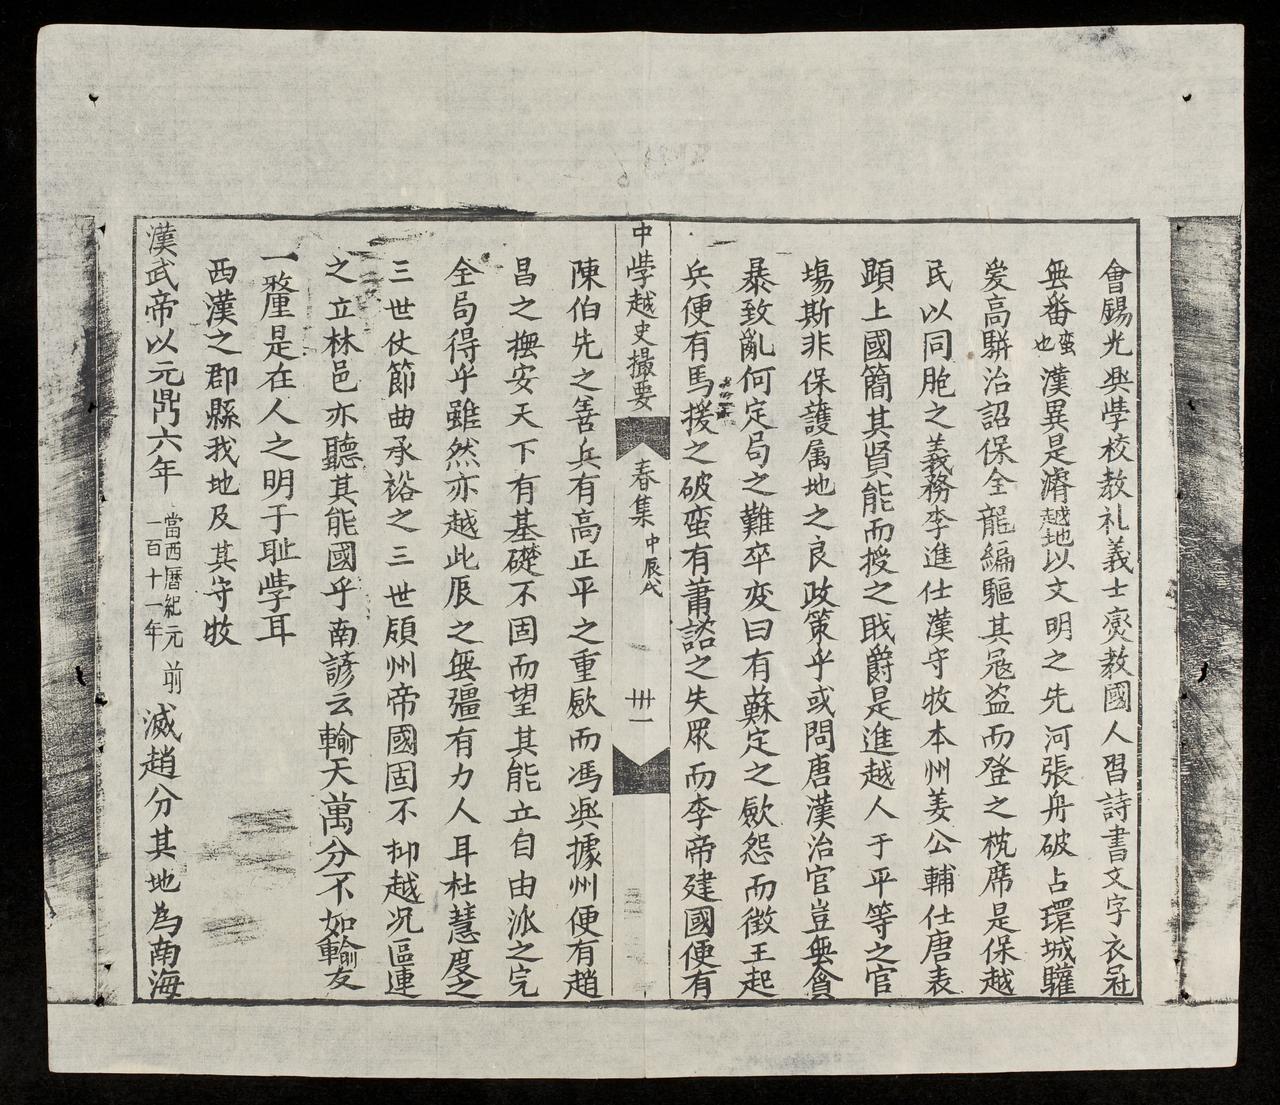 會錫光興學校教礼義士爕教國人習詩書文字衣冠
無番蛮也漢異是濬越地以文明之先河張舟破占環城驩
爱高駢治詔保全龍編驅其冦盗而登之枕席是保越
民以同胞之義務李進仕漢守牧本州姜公輔仕唐表
顕上國簡其賢能而授之戝爵是進越人于平等之官
塲斯非保護属地之良政策乎或問唐漢治官豈無貪
暴致亂何定局之難卒变曰有蘇定之歛怨而徵王起
兵便有馬援之破蛮有蕭諮之失眾而李帝建國便有
中學越史撮要 春集 中辰代 卅一
陳伯先之善兵有高正平之重歛而馮興據州便有趙
昌之撫安天下有基礎不固而望其能立自由派之完
全局得乎雖然亦越此辰之無彊有力人耳杜慧度之
三世仗節曲承裕之三世頋州帝國固不抑越况區連
之立林邑亦聽其能國乎南諺云輸天萬分不如輸友
一釐是在人之明于耻學耳
西漢之郡縣我地及其守牧
漢武帝以元鼎六年當西曆紀元前一百十一年滅趙分其地為南海